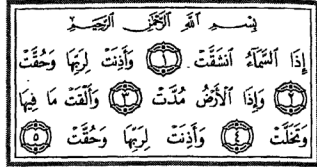 بِسْمِ اللَّهِ الرَّحْمَٰنِ الرَّحِيمِ
إِذَا السَّمَاءُ انشَقَّتْ ١ وَأَذِنَتْ لِرَبِّهَا وَحُقَّتْ
٢ وَإِذَا الْأَرْضُ مُدَّتْ ٣ وَأَلْقَتْ مَا فِيهَا
وَتَخَلَّتْ ٤ وَأَذِنَتْ لِرَبِّهَا وَحُقَّتْ ٥